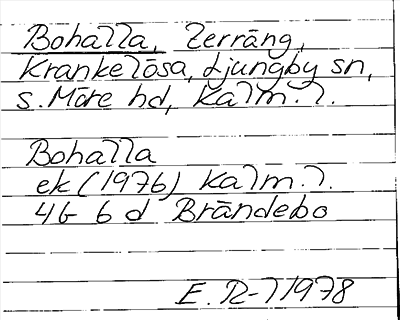 Bohalla, Terräng,
Krankelösa, Ljungby sn,
S. Möre hd, Kalm. l.
Bohalla
ek (1976) Kalm. l.
4G 6 d Brändebo
E. R-l 1978